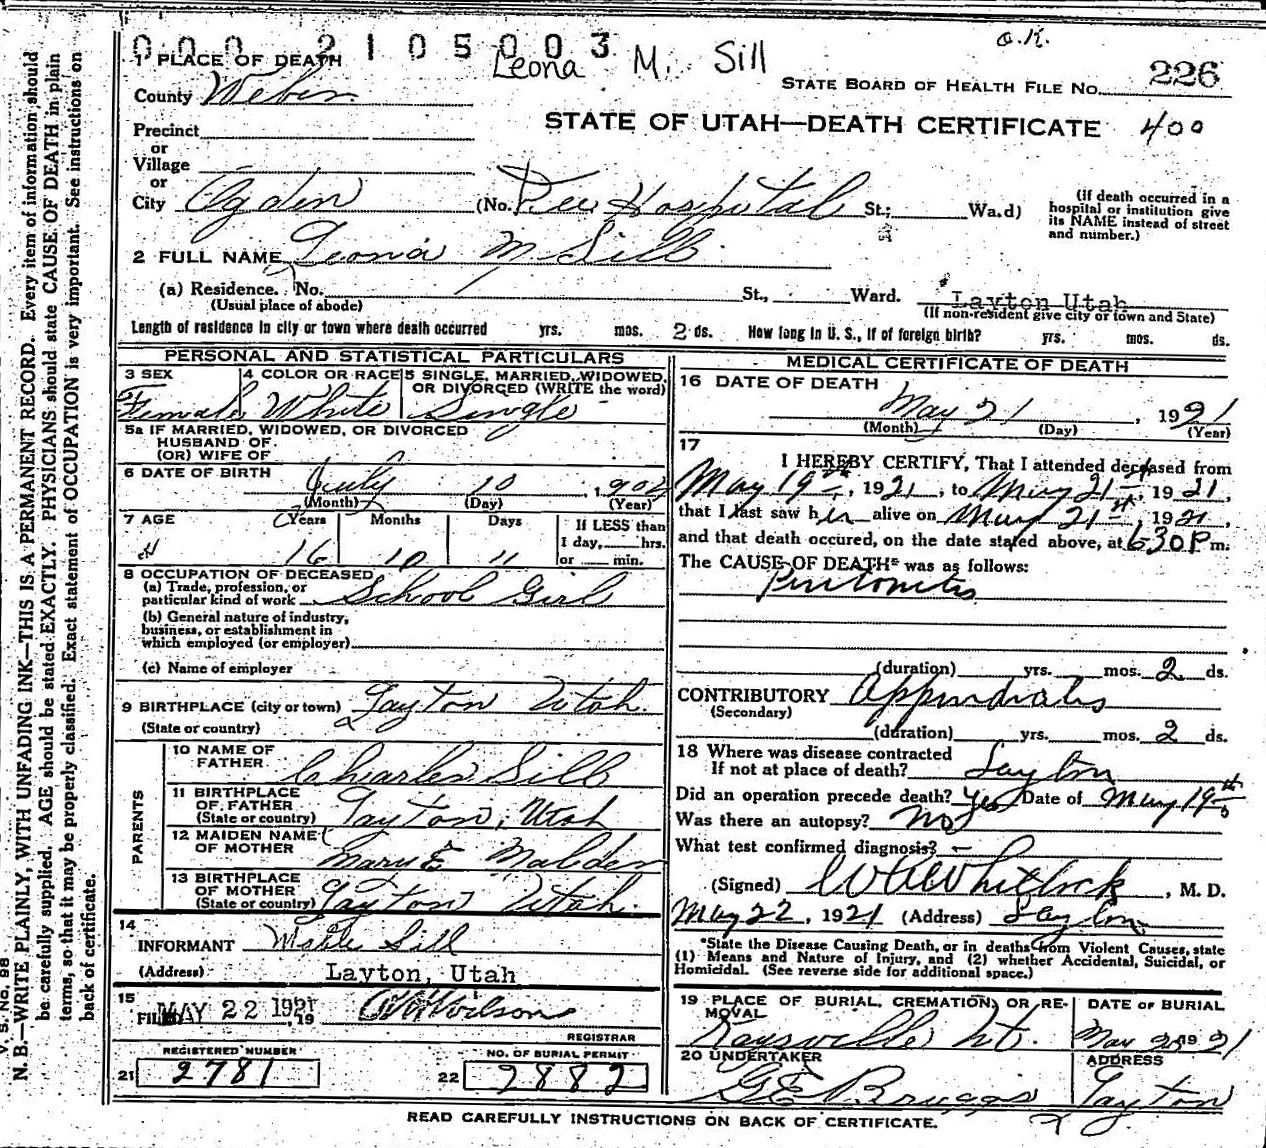 0 0 0 2 1 0 5 0 0 3
O.K.
Leona M. Sill
1 PLACE OF DEATH
STATE BOARD OF HEALTH FILE No. 226
County Weber
STATE OF UTAH—DEATH CERTIFICATE 400
Precinct
or
Village
or
City Ogden (No. Dee Hospital St.; Wa.d)
(If death occurred in a hospital or institution give its NAME instead of street and number.)
2 FULL NAME Leona M Sill
(a) Residence. No. St., Ward. Layton Utah
(Usual place of abode) (If non-resident give city or town and State)
Length of residence in city or town where death occurred yrs. mos. 2 ds. How long in U. S., if of foreign birth? yrs. mos. ds.
PERSONAL AND STATISTICAL PARTICULARS
3 SEX Female
4 COLOR OR RACE White
5 SINGLE, MARRIED, WIDOWED, OR DIVORCED (WRITE the word) Single
5a IF MARRIED, WIDOWED, OR DIVORCED
HUSBAND OF
(OR) WIFE OF
6 DATE OF BIRTH July 10, 1904
(Month) (Day) (Year)
7 AGE Years Months Days If LESS than
1 day, hrs.
16 10 11 or min.
8 OCCUPATION OF DECEASED
(a) Trade, profession, or
particular kind of work School Girl
(b) General nature of industry,
business, or establishment in
which employed (or employer)
(c) Name of employer
9 BIRTHPLACE (city or town) Layton Utah.
(State or country)
PARENTS
10 NAME OF
FATHER Charles Sill
11 BIRTHPLACE
OF FATHER
(State or country) Layton, Utah
12 MAIDEN NAME
OF MOTHER Mary E
13 BIRTHPLACE
OF MOTHER
(State or country) Layton Utah.
14
INFORMANT Sill
(Address) Layton, Utah
15
FILED MAY 22 1921, 19 Wilson
REGISTRAR
REGISTERED NUMBER
21 2781
NO. OF BURIAL PERMIT
22 2882
MEDICAL CERTIFICATE OF DEATH
16 DATE OF DEATH
May 21, 1921
(Month) (Day) (Year)
17
I HEREBY CERTIFY, That I attended deceased from
May 19th, 1921, to May 21st, 1921,
that I last saw her alive on May 21st, 1921,
and that death occured, on the date stated above, at 6:30 P m.
The CAUSE OF DEATH* was as follows:
Peritonitis
(duration) yrs. mos. 2 ds.
CONTRIBUTORY Appendicitis
(Secondary)
(duration) yrs. mos. 2 ds.
18 Where was disease contracted
If not at place of death? Layton
Did an operation precede death? Yes Date of May 19th
Was there an autopsy? No
What test confirmed diagnosis? —
(Signed) Whitlock, M. D.
May 22, 1921 (Address) Layton
*State the Disease Causing Death, or in deaths from Violent Causes, state
(1) Means and Nature of Injury, and (2) whether Accidental, Suicidal, or
Homicidal. (See reverse side for additional space.)
19 PLACE OF BURIAL, CREMATION, OR RE-
MOVAL
Kaysville Ut.
DATE OF BURIAL
May 1921
20 UNDERTAKER
G E Briggs
ADDRESS
Layton
READ CAREFULLY INSTRUCTIONS ON BACK OF CERTIFICATE.
V. S. No. 98
N. B.—WRITE PLAINLY, WITH UNFADING INK—THIS IS A PERMANENT RECORD. Every item of information should
be carefully supplied. AGE should be stated EXACTLY. PHYSICIANS should state CAUSE OF DEATH in plain
terms, so that it may be properly classified. Exact statement of OCCUPATION is very important. See instructions on
back of certificate.